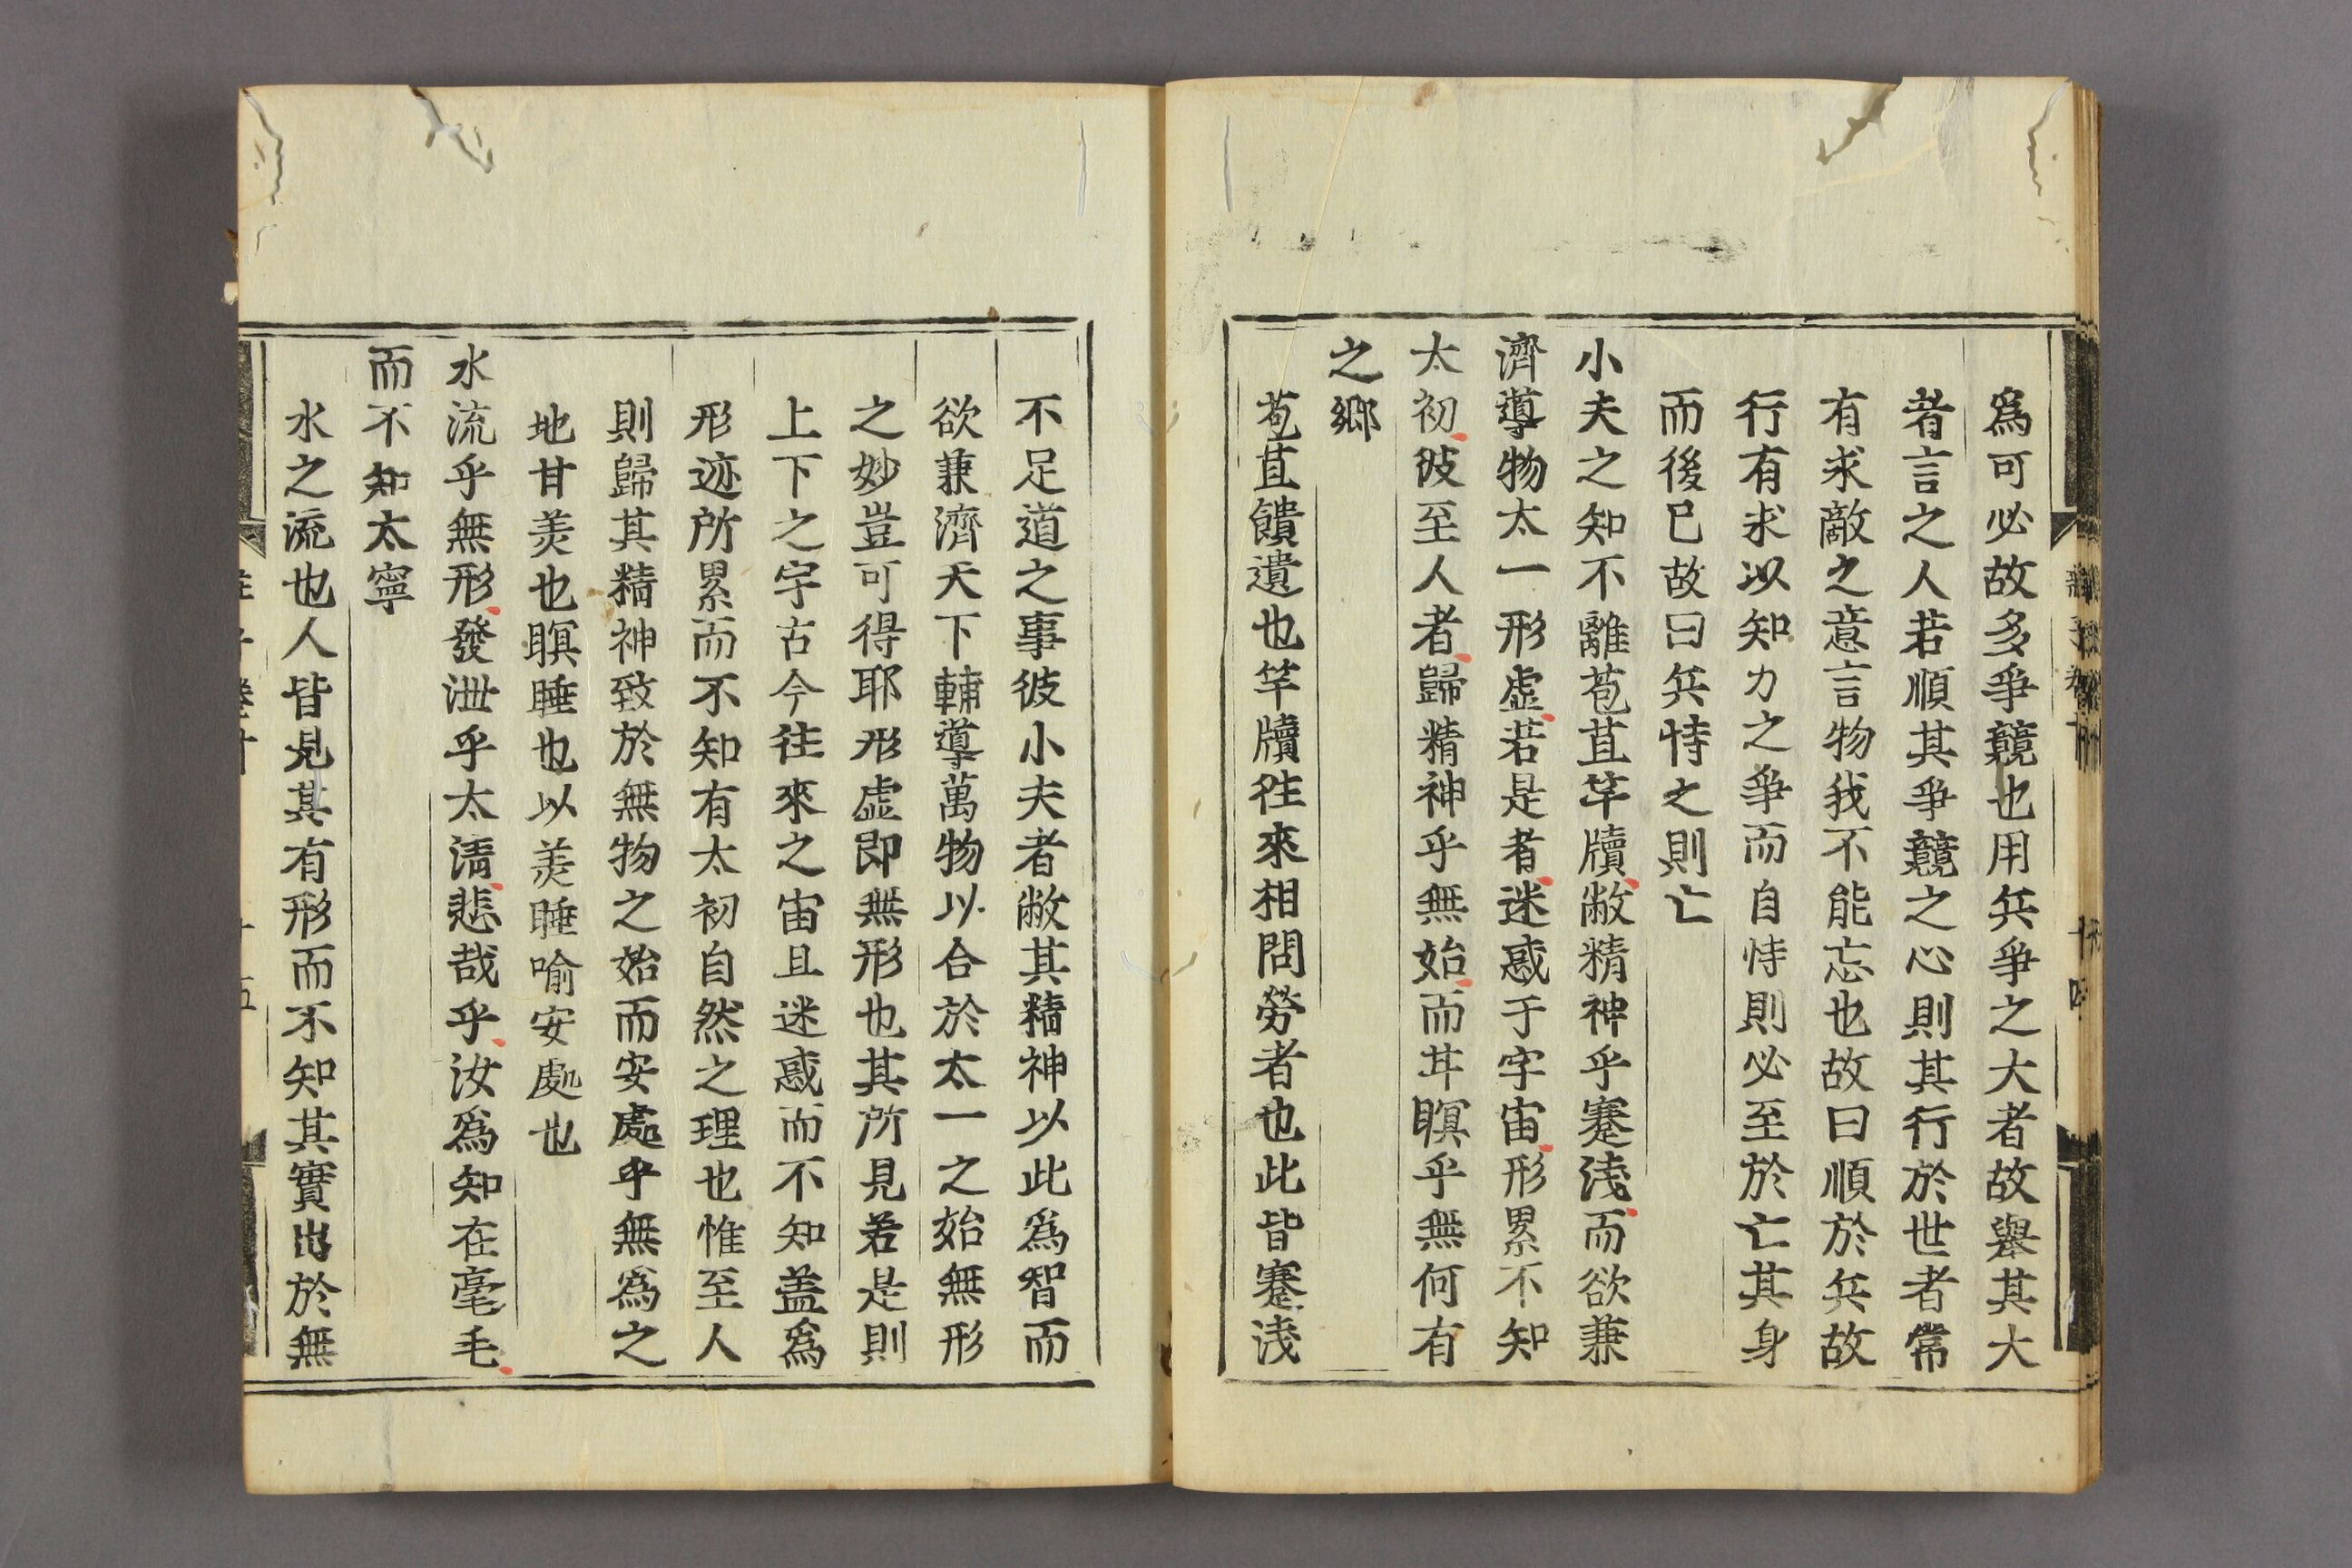 爲可必故多爭競也用兵爭之大者故舉其大
者言之人若順其爭競之心則其行於世者常
有求敵之意言物我不能忘也故曰順於兵故
行有求以知力之爭而自恃則必至於亡其身
而後已故曰兵恃之則亡
小夫之知不離苞苴竿牘敝精神乎蹇淺而欲兼
濟導物太一形虛若是者迷惑于宇宙形累不知
太初彼至人者歸精神乎無始而甘瞑乎無何有
之鄉
苞苴饋遺也竿牘往來相問勞者也此皆蹇淺
不足道之事彼小夫者敝其精神以此爲智而
欲兼濟天下輔導萬物以合於太一之始無形
之妙豈可得耶形虛即無形也其所見若是則
上下之宇古今往來之宙且迷惑而不知盖爲
形迹所累而不知有太初自然之理也惟至人
則歸其精神致於無物之始而安處乎無爲之
地甘美也瞑睡也以美睡喻安處也
水流乎無形發泄乎太清悲哉乎汝爲知在毫毛
而不知太寧
水之流也人皆見其有形而不知其實出於無